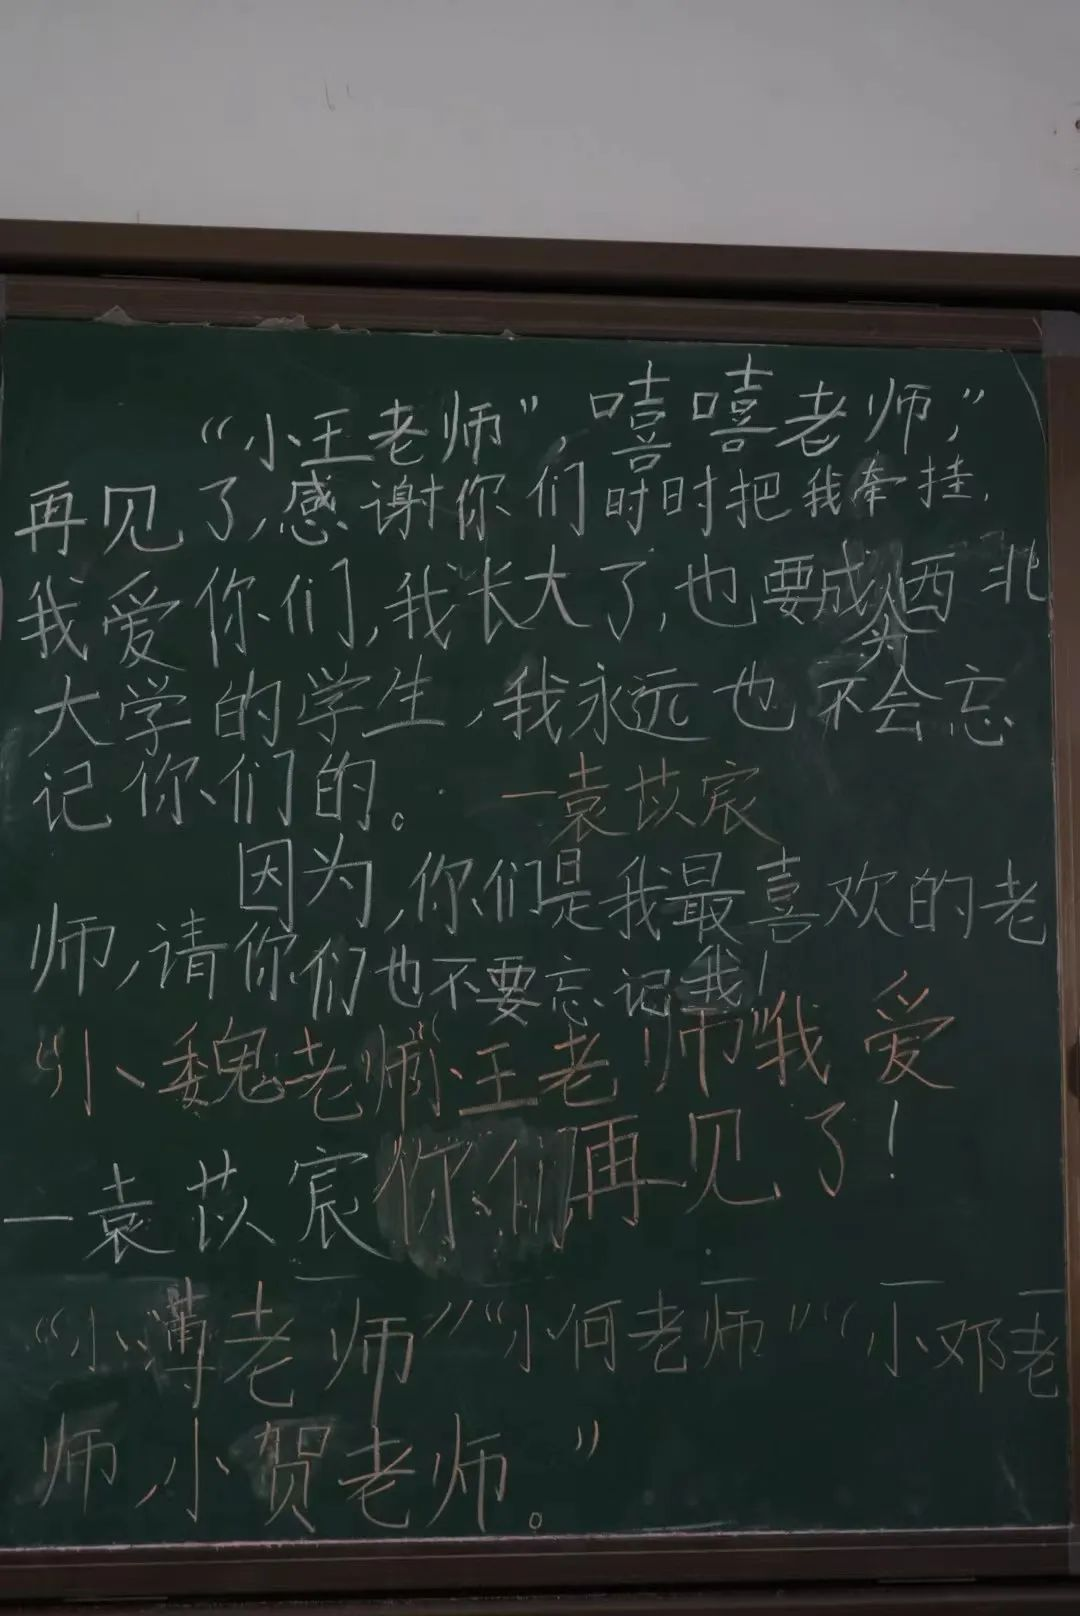 “小王老师”，嘻嘻老师，”
再见了，感谢你们时时把我牵挂，
我爱你们，我长大了，也要成为西北
大学的学生，我永远也不会忘
记你们的。 —袁苡宸
因为，你们是我最喜欢的老
师，请你们也不要忘记我！
“小魏老师”“小王老师”我爱
你们再见了！
—袁苡宸
“小薄老师”“小何老师”“小邓老
师，小贺老师。”